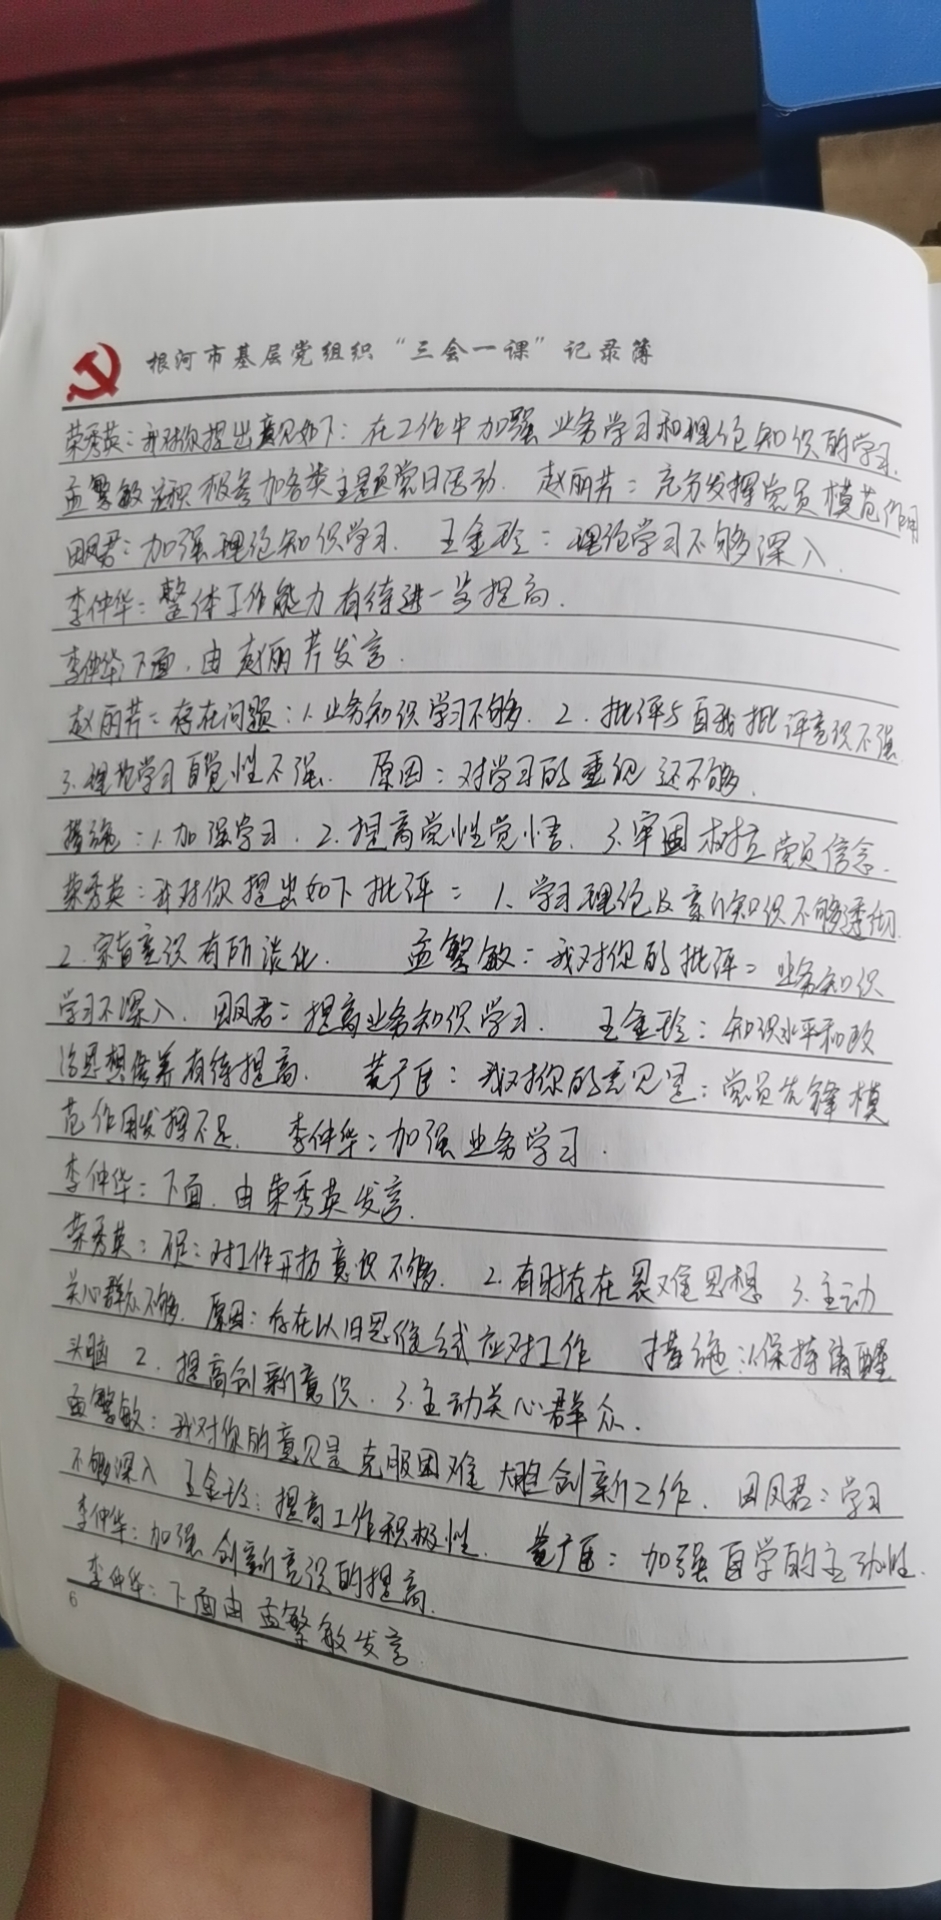 根河市基层党组织“三会一课”记录簿
荣秀英：我对你提出意见如下：在工作中加强业务学习和理论知识的学习.
孟繁敏 积极参加各类主题党日活动. 赵丽芳：充分发挥党员模范作用
田凤君：加强理论知识学习. 王金玲：理论学习不够深入.
李仲华：整体工作能力有待进一步提高.
李仲华：下面.由赵丽芳发言.
赵丽芳：存在问题：1.业务知识学习不够. 2.批评与自我批评意识不强
3.理论学习自觉性不强. 原因：对学习的重视还不够.
措施：1.加强学习. 2.提高党性觉悟. 3.牢固树立党员信念.
荣秀英：我对你提出如下批评：1、学习理论及 知识不够透彻.
2. 意识有所淡化. 孟繁敏：我对你的批评：业务知识
学习不深入. 田凤君：提高业务知识学习. 王金玲：知识水平和政
治思想修养有待提高. 黄广臣：我对你的意见是：党员先锋模
范作用发挥不足. 李仲华：加强业务学习.
李仲华：下面.由荣秀英发言.
荣秀英：不足：对工作开拓意识不够. 2.有时存在畏难思想 3.主动
关心群众不够. 原因：存在以旧思维方式应对工作 措施：1.保持清醒
头脑 2.提高创新意识. 3.主动关心群众.
孟繁敏：我对你的意见是克服困难 大胆创新工作. 田凤君：学习
不够深入 王金玲：提高工作积极性. 黄广臣：加强自学的主动性.
李仲华：加强创新意识的提高.
李仲华：下面由孟繁敏发言.
6